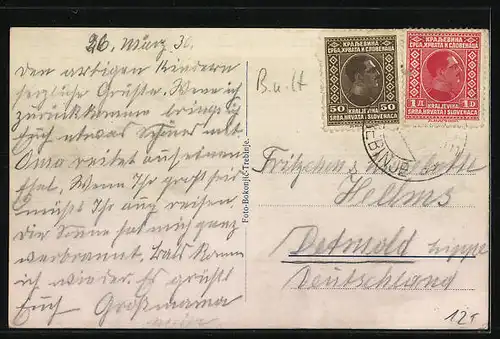 26. März 30.
Den artigen Kindern
herzliche Grüße. Wenn ich
zurückkomme bringe ich
Euch etwas schönes mit
Oma reitet auf einem
Esel. Wenn Ihr groß seid
müßt Ihr auch reisen.
Die Sonne hat mich ganz
verbrannt. Bald komme
ich wieder. Es grüßt
Euch Großmama
Foto-Bokonjić-Trebinje.
КРАЉЕВИНА
СРБА, ХРВАТА И СЛОВЕНАЦА
50 50
KRALJEVINA
SRBA, HRVATA I SLOVENACA
КРАЉЕВИНА
СРБА, ХРВАТА И СЛОВЕНАЦА
1 Д 1 D
KRALJEVINA
SRBA, HRVATA I SLOVENACA
Fritzchen
Helms
Detmold Lippe
Deutschland